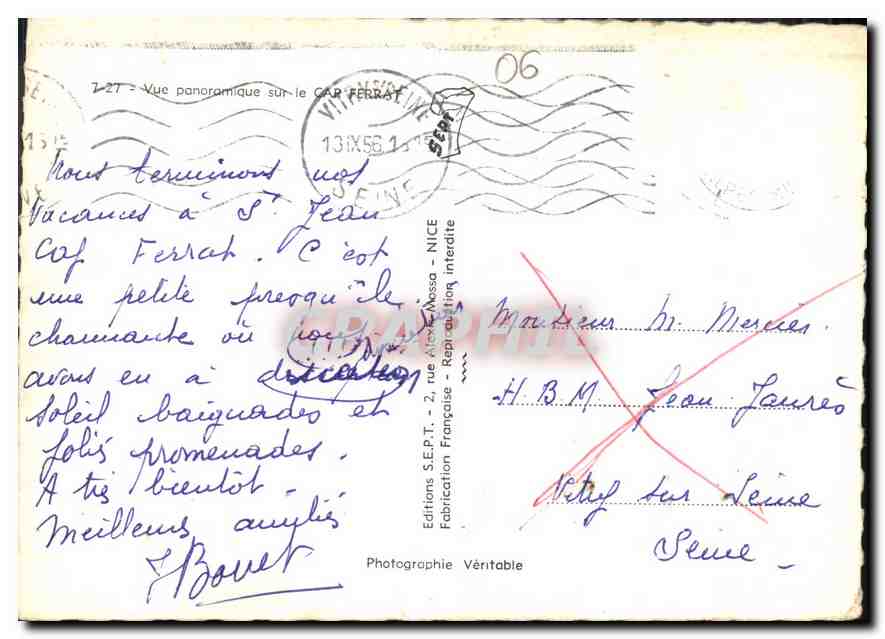 06
7-27 - Vue panoramique sur le CAP FERRAT
VITRY S/SEINE
13 IX 56
SEINE
SEPT
Nous terminons nos
vacances à St Jean
Cap Ferrat. C'est
une petite presqu'île
charmante où nous
avons eu à
Soleil baignades et
jolies promenades.
A très bientôt -
Meilleures amitiés
J Bouet
Editions S.E.P.T. - 2, rue Alexis Mossa - NICE
Fabrication Française - Reproduction interdite
GRAPHIL
Monsieur M. Mercier.
H.B.M Jean Jaurès
Vitry sur Seine
Seine -
Photographie Véritable